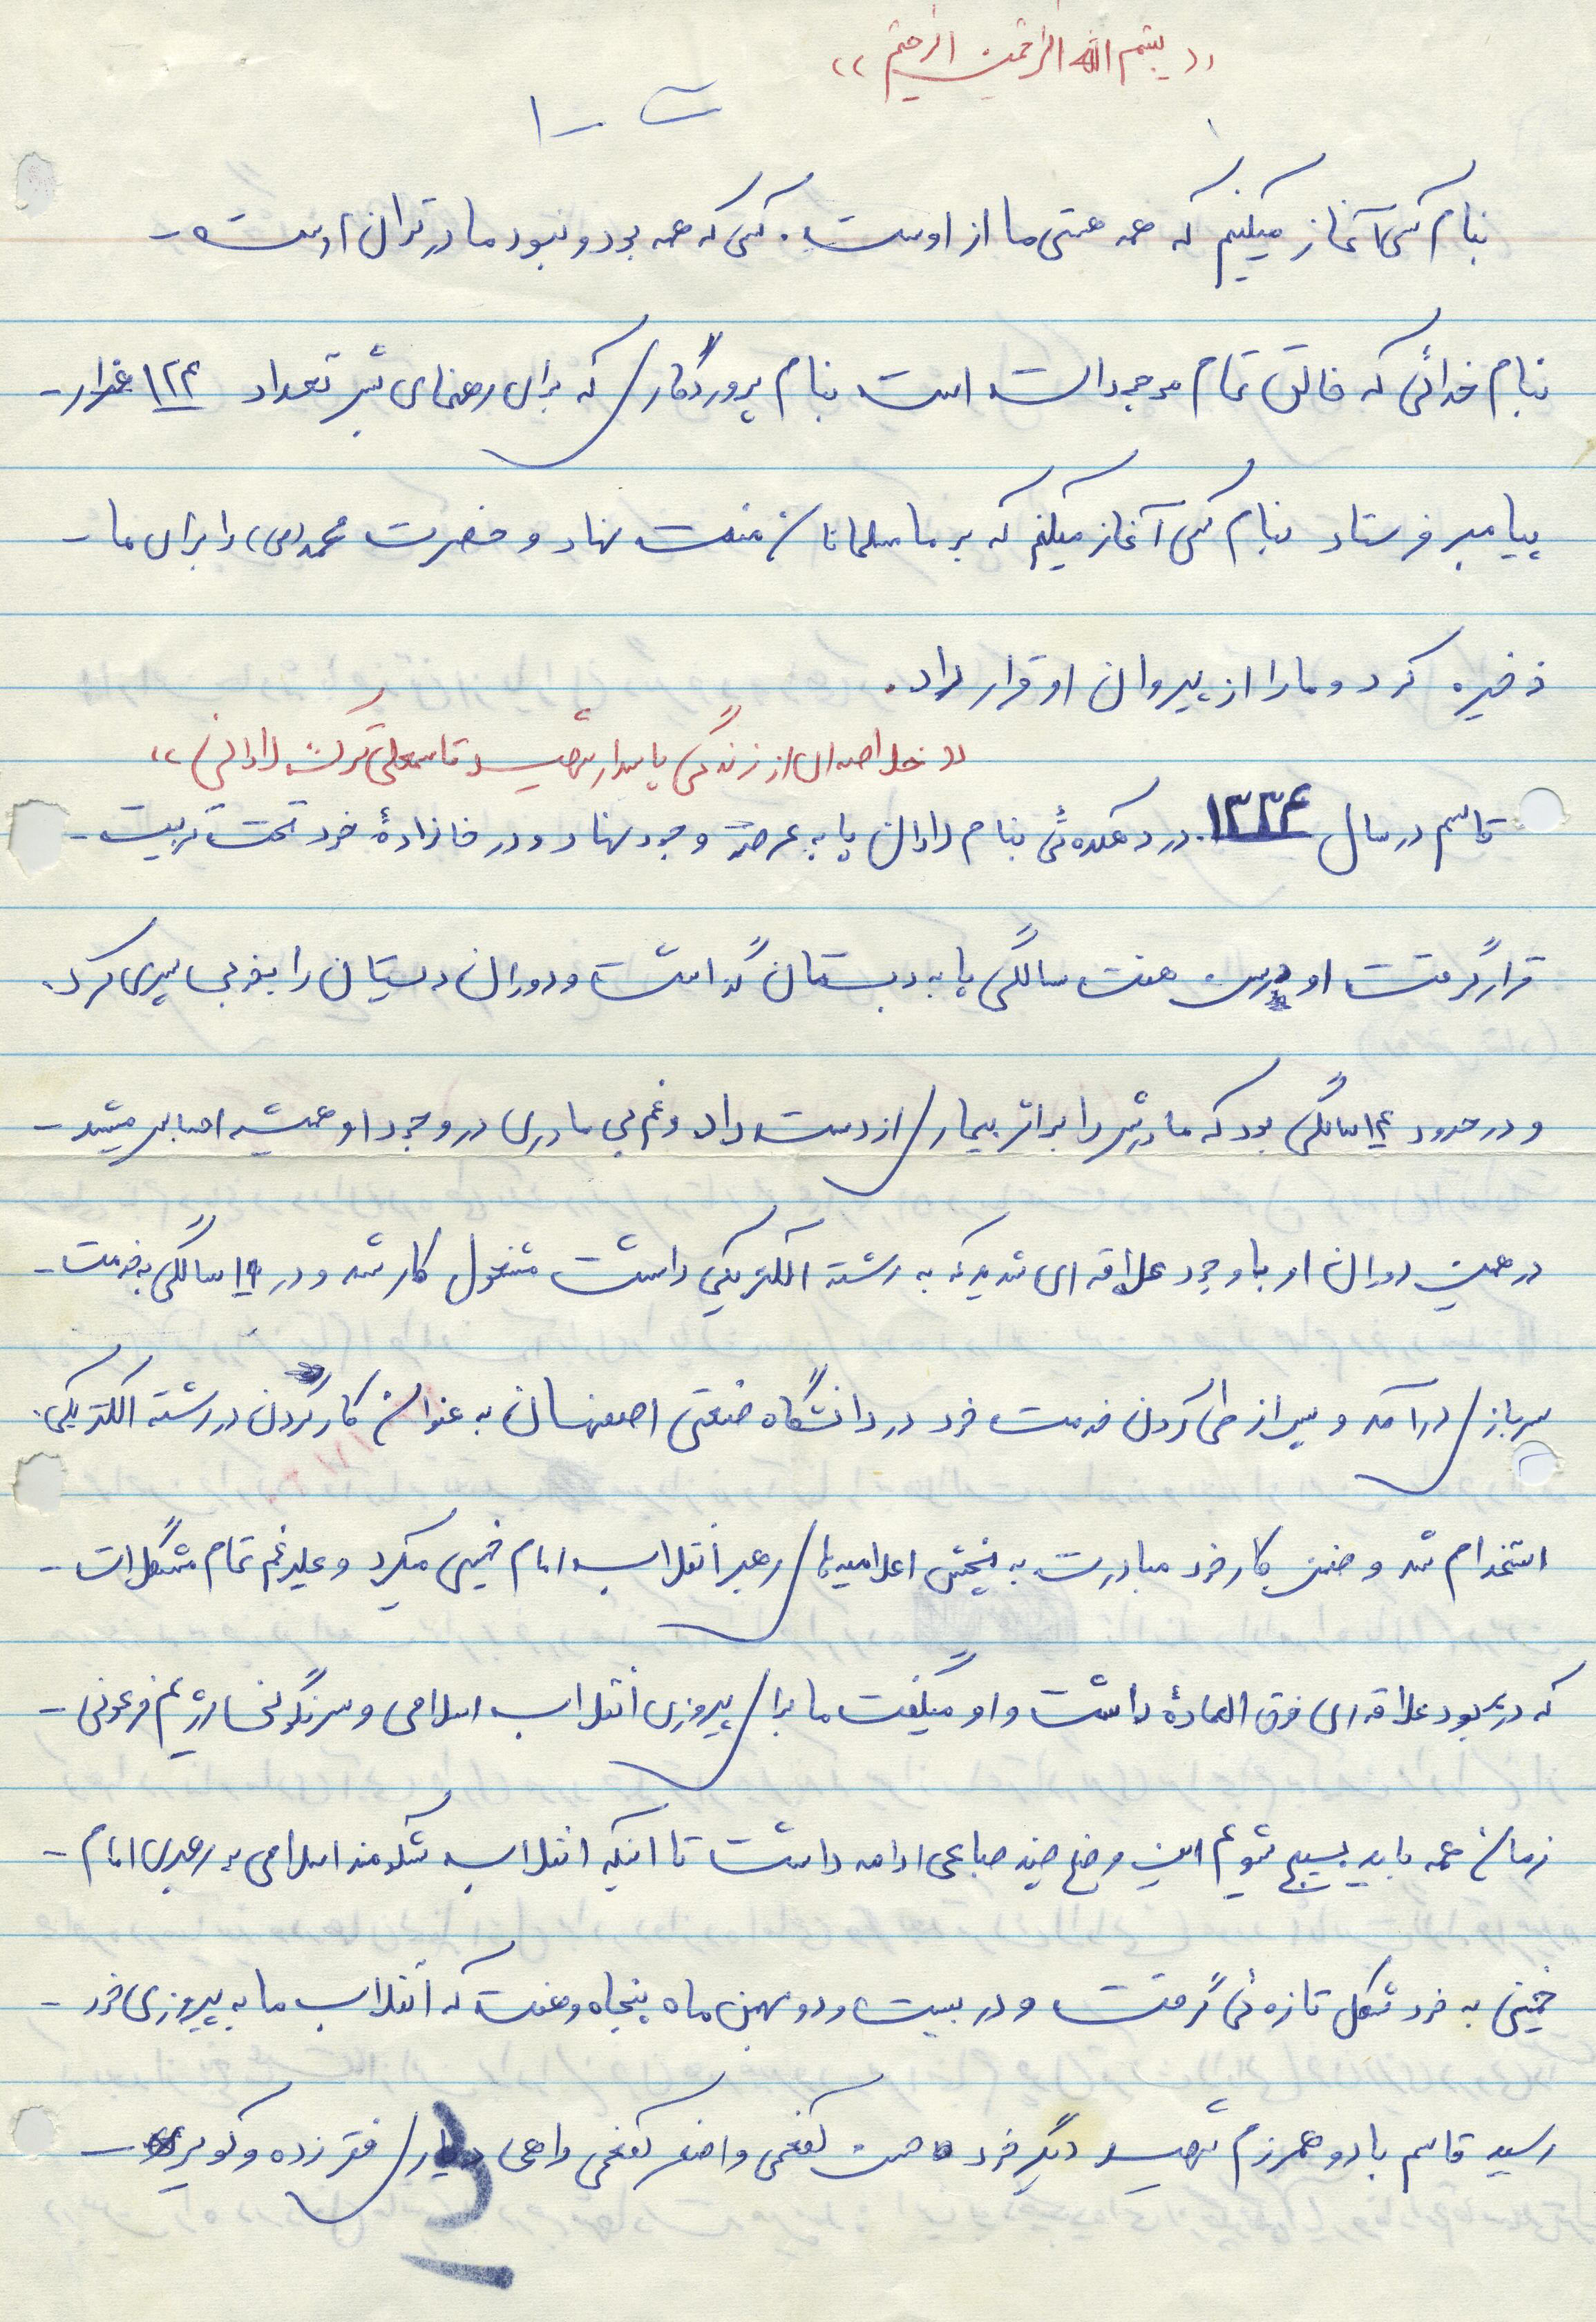 «بسم الله الرحمن الرحیم»
ت - ۱
بنام کسی آغاز میکنیم که همه هستی ما از اوست. کسی که همه بود و نبود ما در توان اوست -
بنام خدائی که خالق تمام موجودات است بنام پروردگاری که برای رهنمای بشر تعداد ۱۲۴ هزار -
پیامبر فرستاد بنام کسی آغاز میکنم که بر ما مسلمانان منت نهاد و حضرت محمد (ص) را برای ما -
ذخیره کرد و ما را از پیروان او قرار داد.
«خلاصه ای از زندگی پاسدار شهید قاسمعلی ترکان لادانی»
قاسم در سال ۱۳۳۴ در دهکده ئی بنام لادان پا به عرصه وجود نهاد و در خانوادهٔ خود تحت تربیت -
قرار گرفت او درسن هفت سالگی پا به دبستان گذاشت و دوران دبستان را بخوبی سپری کرد.
و در حدود ۱۴ سالگی بود که مادرش را بر اثر بیماری از دست داد و غم بی مادری در وجود او همیشه احساس میشد -
در همین دوران او با وجود علاقه ای شدیدی که به رشته الکتریکی داشت مشغول کار شد و در ۱۹ سالگی به خدمت -
سربازی درآمد و پس از طی کردن خدمت خود در دانشگاه صنعتی اصفهان به عنوان کار کردن در رشته الکتریکی.
استخدام شد و ضمن کار خود مبادرت به پخش اعلامیه های رهبر انقلاب امام خمینی میکرد و علیرغم تمام مشکلات -
که در پی بود علاقه ای فوق العادهٔ داشت و او میگفت ما برای پیروزی انقلاب اسلامی و سرنگونی رژیم فرعونی -
زمان همه باید بسیج شویم این وضع چند صباحی ادامه داشت تا اینکه انقلاب شکوهمند اسلامی به رهبری امام -
خمینی به خود شکل تازه ئی گرفت و در بیست و دو بهمن ماه پنجاه و هفت که انقلاب ما به پیروزی خود -
رسید قاسم با دو همرزم شهید دیگر خود کفعمی و اصغر کفعمی راهی دیار فقر زده و کویر -